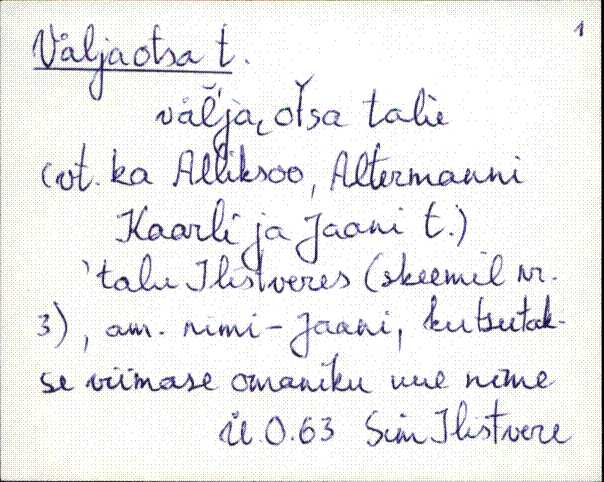 1
Väljaotsa t.
väĺja, otša talu
(vt. ka Alliksoo, Altermanni
Kaarli ja Jaani t.)
'talu Ilistveres (skeemil nr.
3), am. nimi - Jaani, kutsutak-
se viimase omaniku uue nime
Ü.O.63 Sim Ilistvere